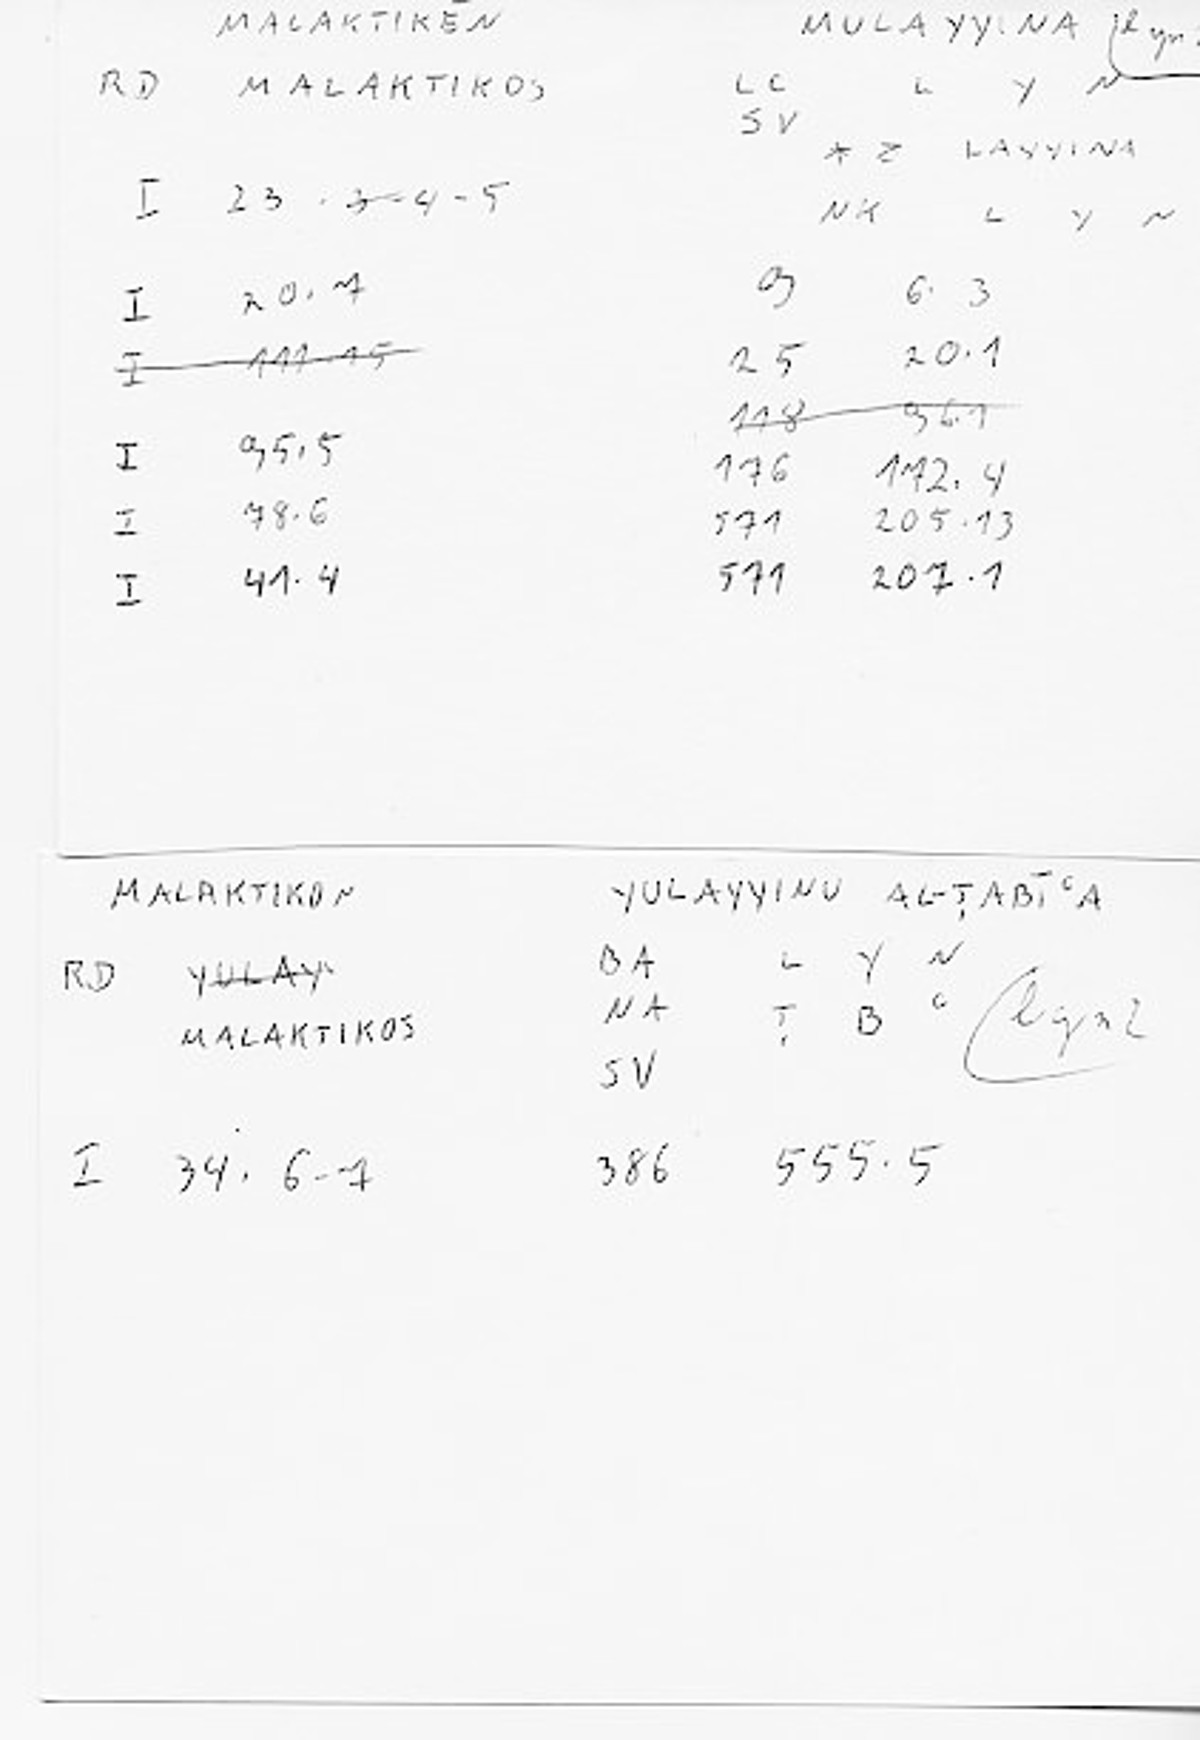 MALAKTIKĒN MULAYYINA
RD MALAKTIKOS LC L Y N
SV
* Z LAYYINA
I 23 . 3-4-5 NK L Y N
I 20.7 9 6. 3
I 111.15 25 20.1
118 96.1
I 95.5 176 112.4
I 78.6 571 205.13
I 41.4 571 207.1
MALAKTIKON YULAYYINU AL-ṬABĪʿA
RD YULAY BA L Y N
MALAKTIKOS NA Ṭ B ʿ lyn2
SV
I 34. 6-7 386 555.5